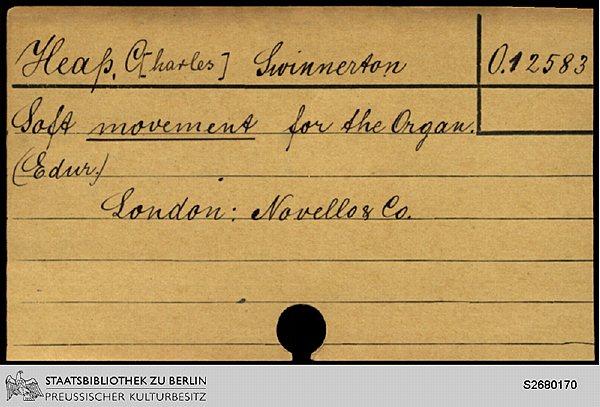 Heap, C[harles] Swinnerton O.12583
Soft movement for the Organ.
(Edur.)
London: Novello & Co.
STAATSBIBLIOTHEK ZU BERLIN
PREUSSISCHER KULTURBESITZ
S2680170